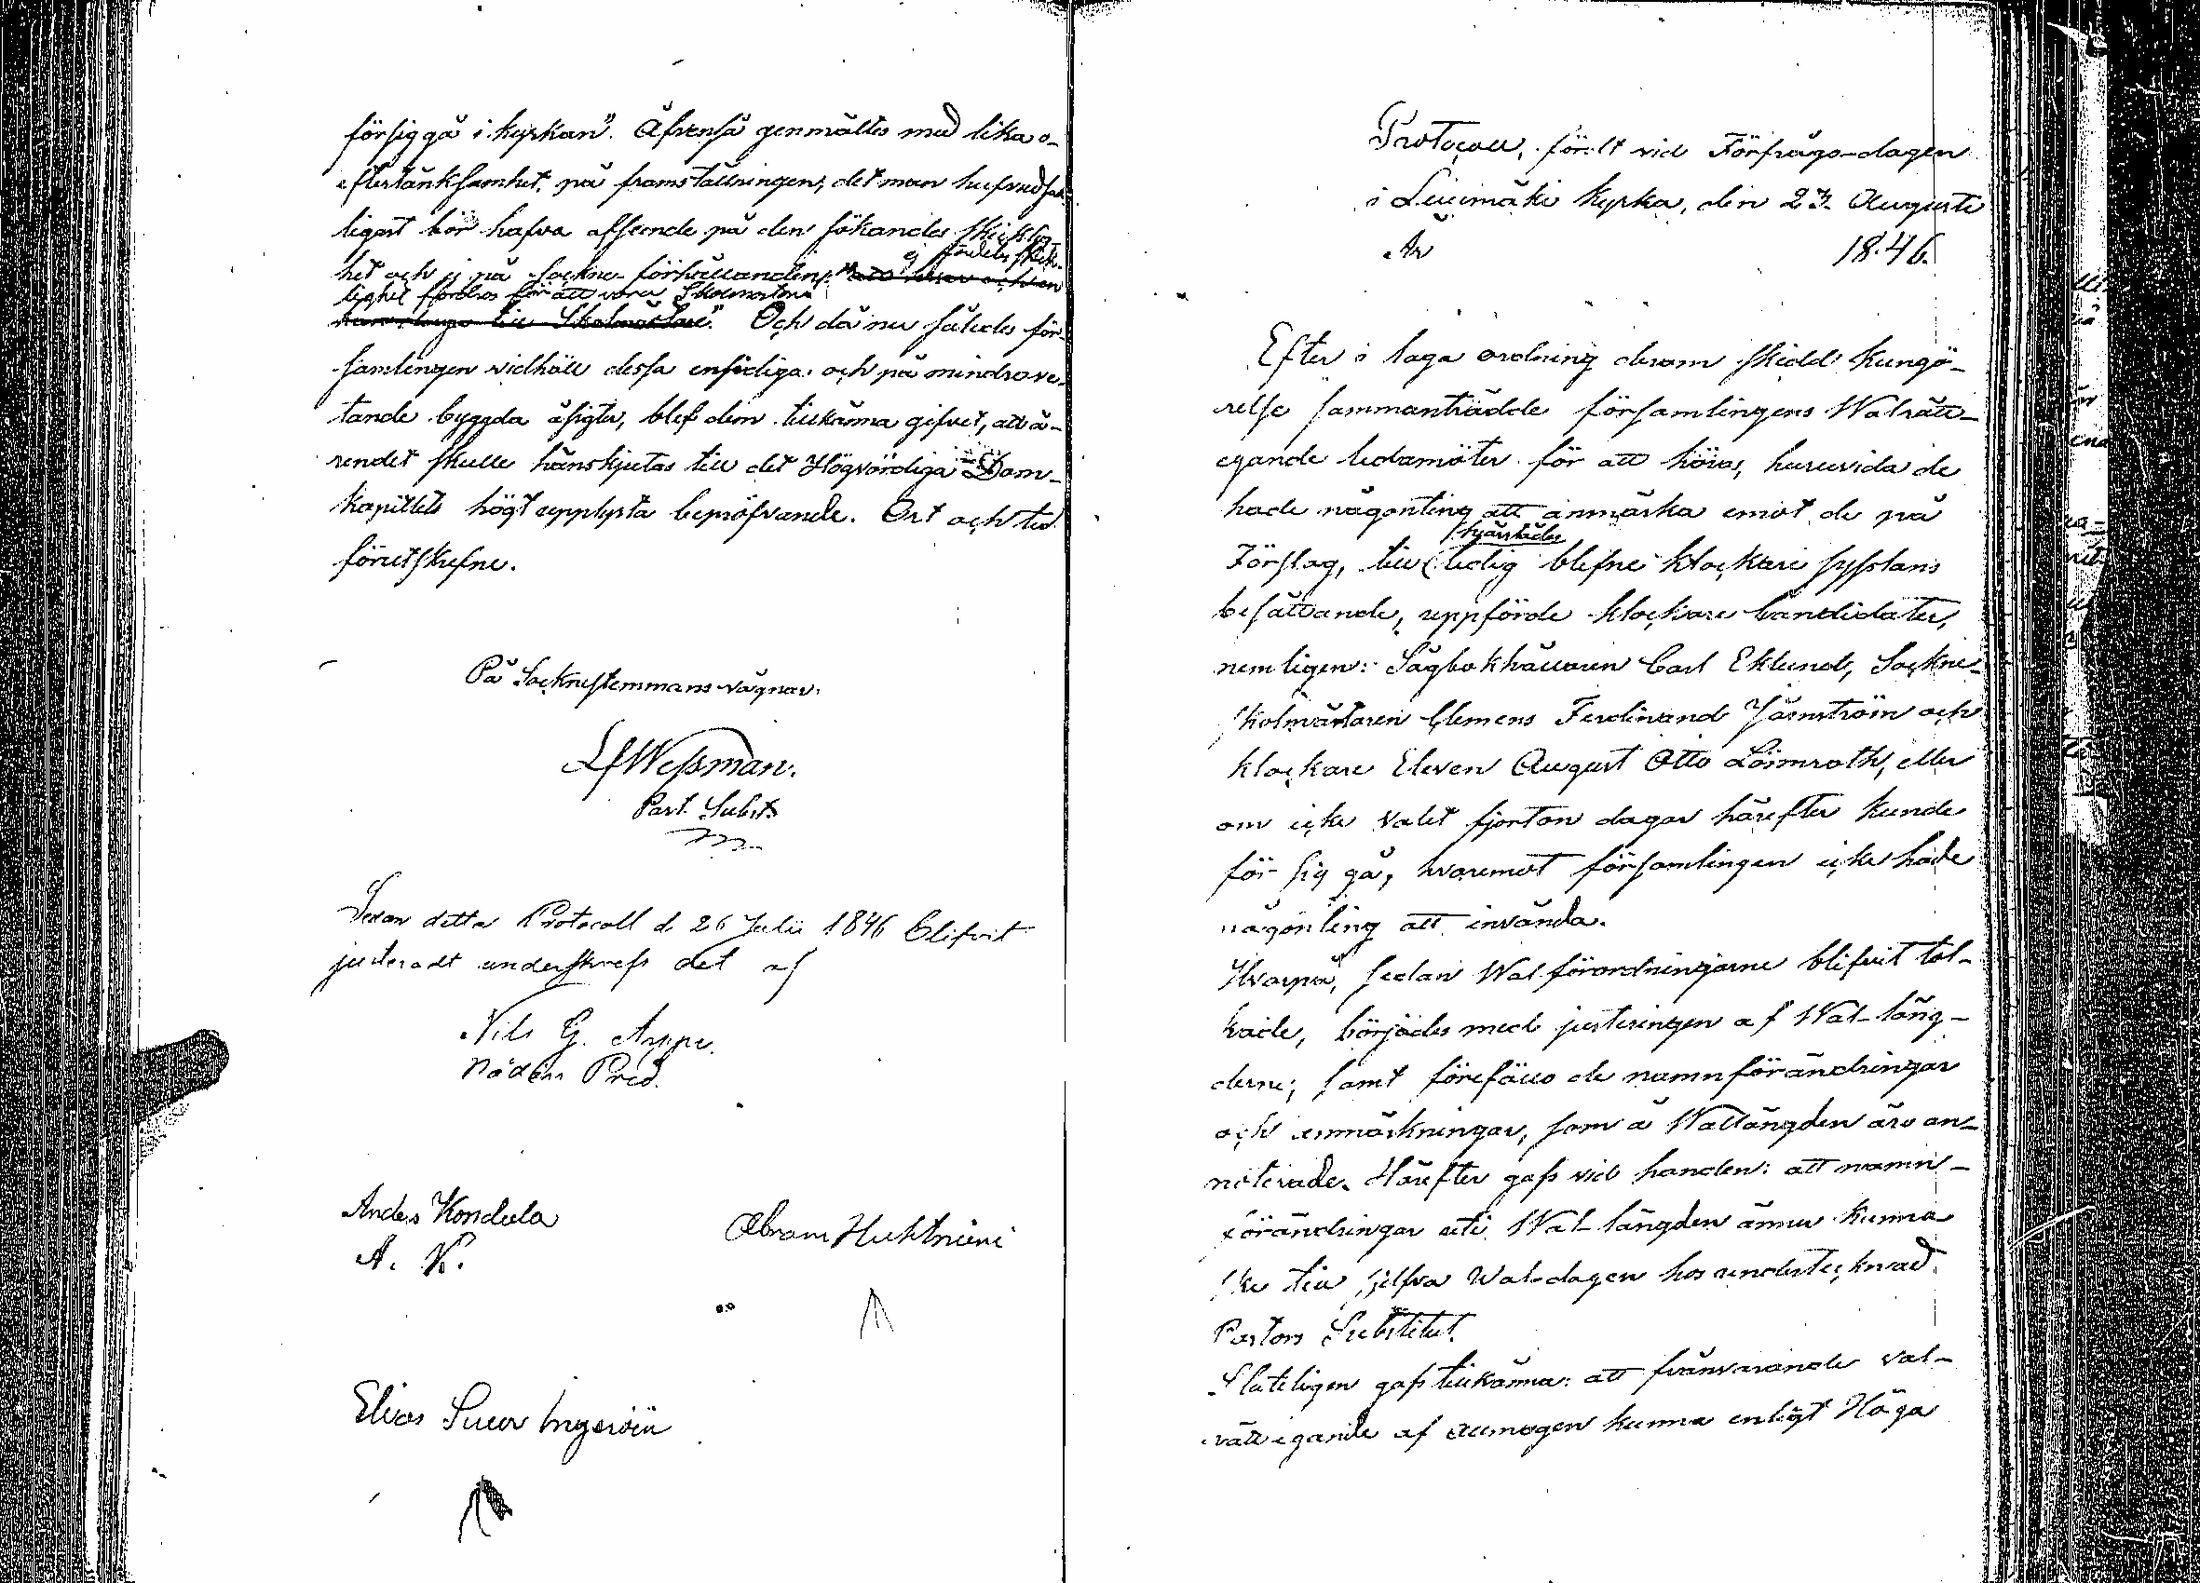 försiggå i kyrkan". Äfvenså genmältes med lika o-
eftertänksamhet, på framställningen, det man hufvudsak-
ligast bör hafva afseende på den sökandes skicklig-
het och ej på sockne-förhållanden,
ej särdeles skick-
lighet fordras för att vara Skolmästare
till Skolmästare". Och då nu således för-
samlingen vidhöll dessa ensidiga och på mindre ve-
tande byggda åsigter, blef dem tillkänna gifvet, att ä-
rendet skulle hänskjutas till det Högvördiga Dom-
kapitlets högt upplysta bepröfvande. Ort och tid
förutskrefne.
På Socknestemmans vägnar:
LfWessman.
Past. Subst.
Sedan detta Protocoll d. 26 Julii 1846 blifvit
justeradt underskrefs det af
Nils G. Arppe.
Nådårs Pred.
Anders Kondula
A. K.
Abram Huhtniemi
Elias Suur Ingeroin
Protocoll, fördt vid Förfrågo-dagen
i Luumäki kyrka, den 23 Augusti
År 1846.
Efter i laga ordning derom skedd kungö-
relse sammanträdde församlingens Walrätt-
egande ledamöter för att höras, huruvida de
hade någonting att anmärka emot de på
härstädes
Förslag, till ledig blefne klockare sysslans
besättande, uppförde klockare kandidater,
nemligen: Sågbokhållaren Carl Eklund, Sockne-
skolmästaren Clemens Ferdinand Järnström och
klockare Eleven August Otto Lönnroth, eller
om icke valet fjorton dagar härefter kunde
för sig gå, hvaremot församlingen icke hade
någonting att invända.
Hvarpå, sedan Walförordningarne blifvit tol-
kade, börjades med justeringen af Wal-läng-
derne; samt föreföllo de namnförändringar
och anmärkningar, som å Wallängden äro an-
noterade. Härefter gafs vid handen: att namn-
förändringar uti Wal-längden ännu kunna
ske till sjelfva Wal-dagen hos undertecknad
Pastors Substitut.
Sluteligen gafs tillkänna: att frånvarande val-
rätt egande af allmogen kunna enligt Höga